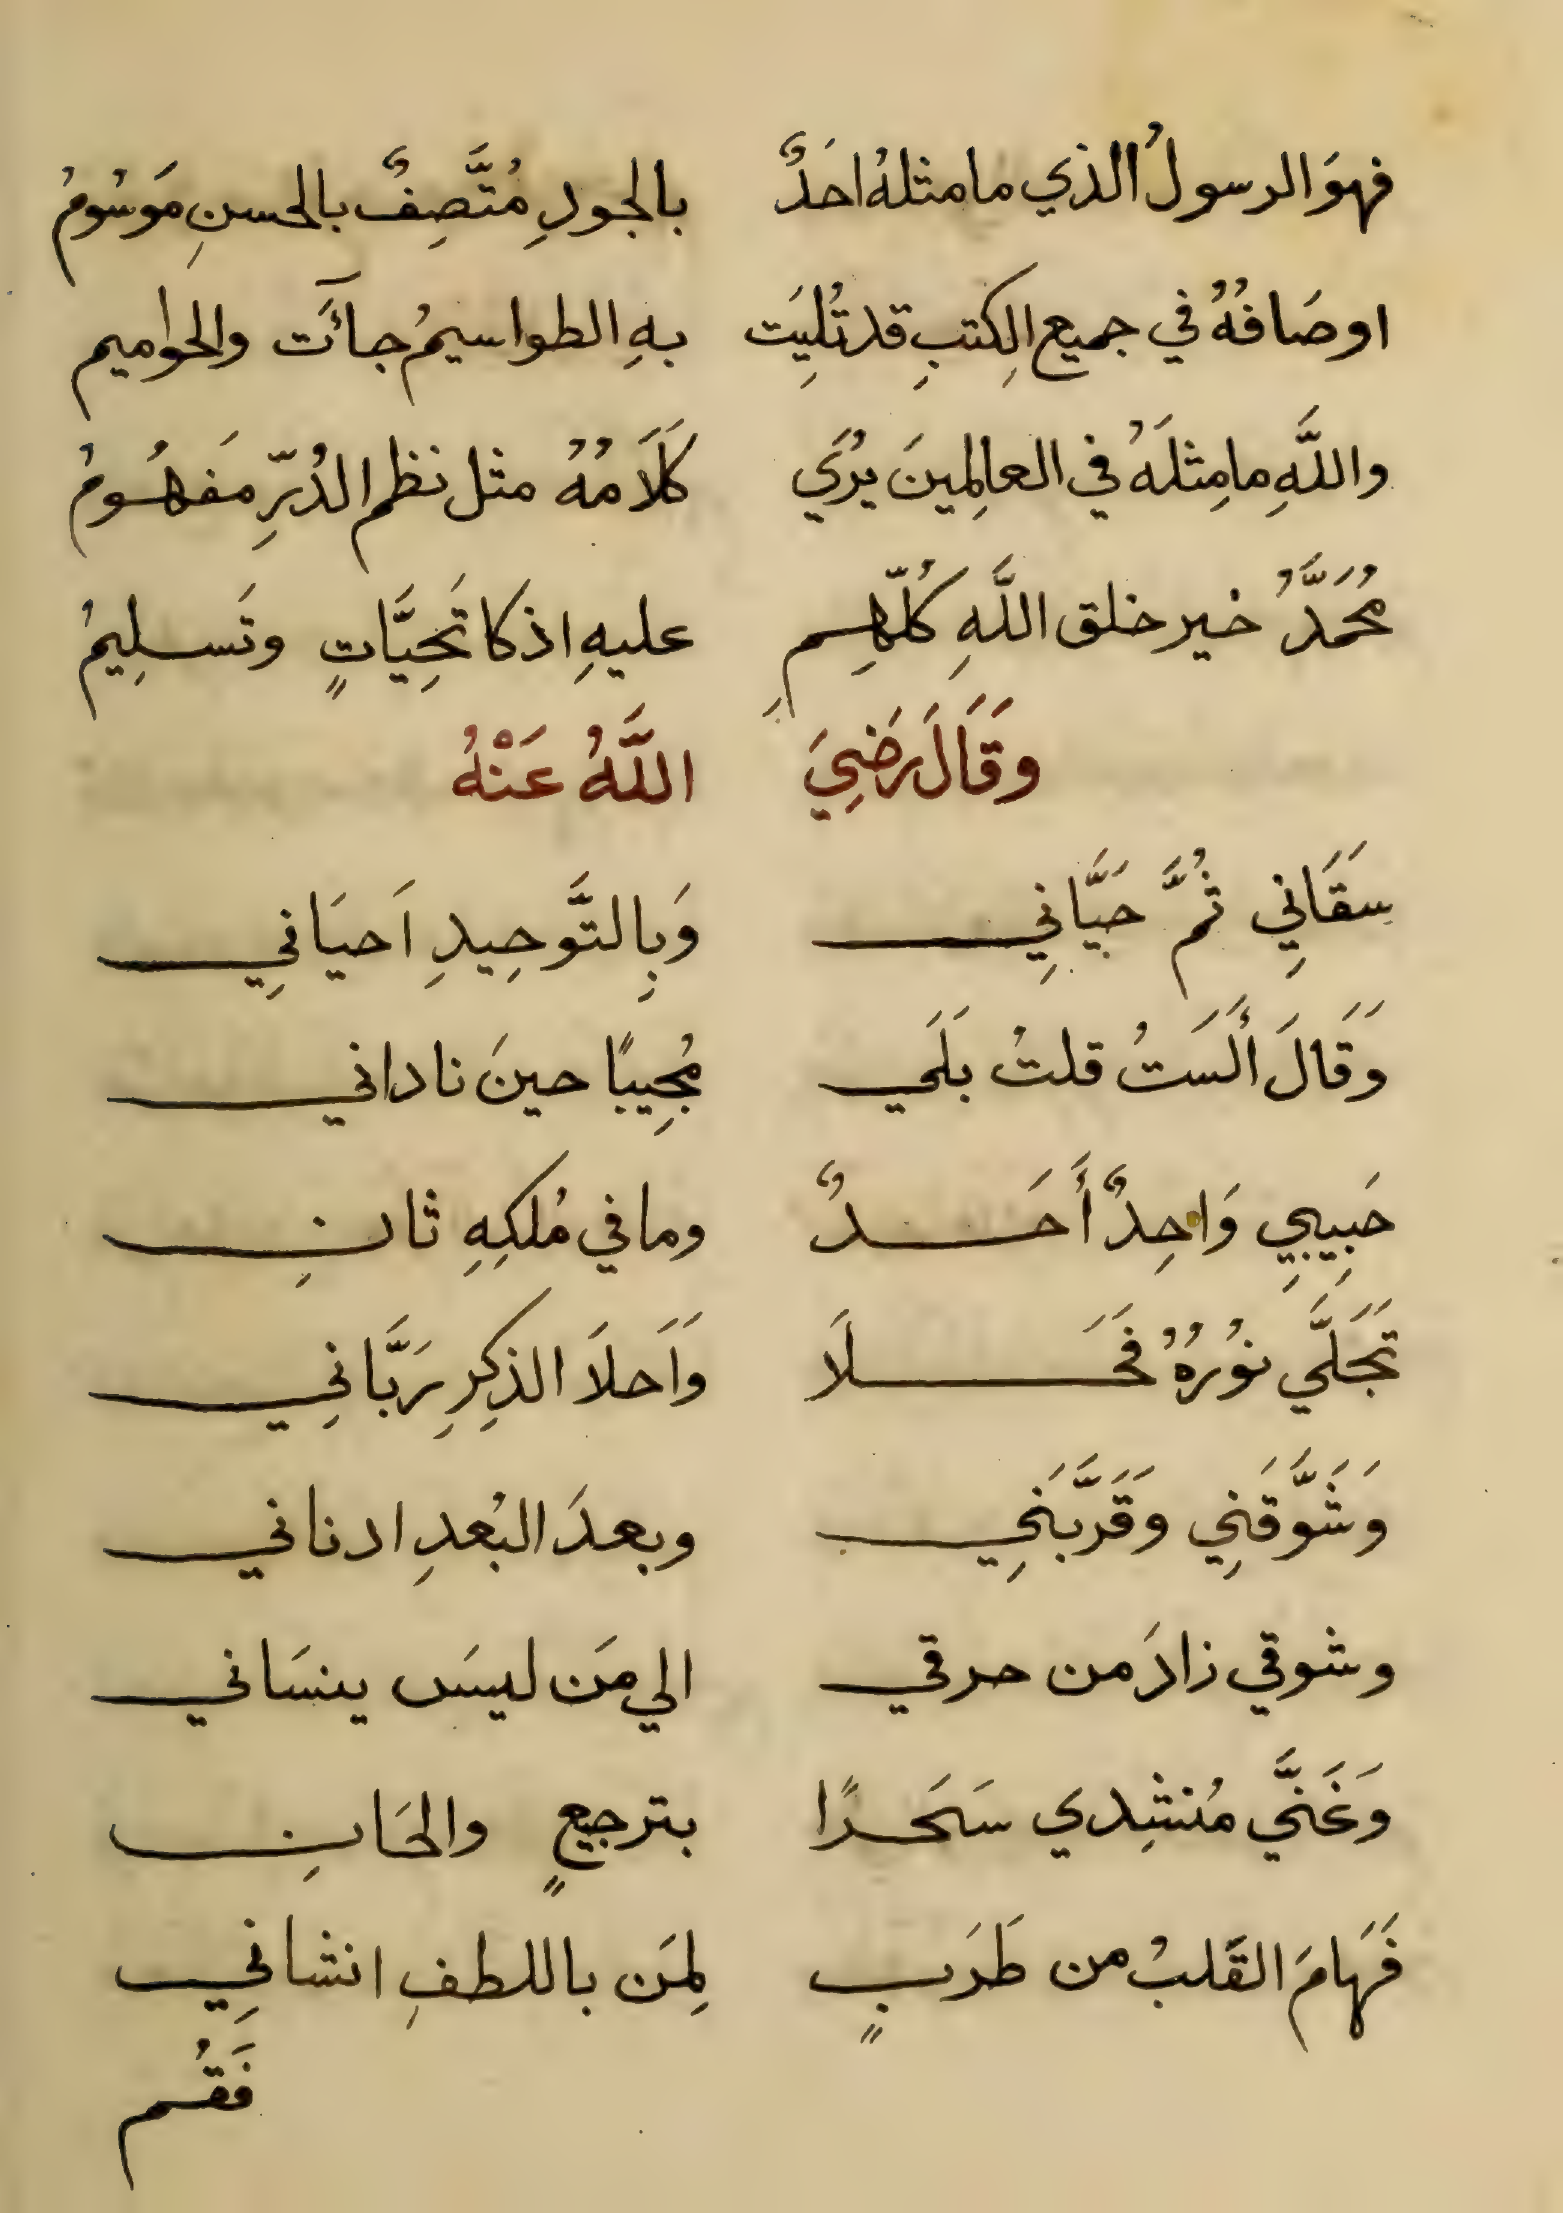 فهوَ الرسولُ الذي ما مثلهُ احَدٌ بالجودِ مُتَّصِفٌ بالحسنِ مَوسُومُ
اوصَافُهُ في جميع الكِتبِ قد تُلِيَت بهِ الطواسيمُ جآئَت والحوَاميم
واللَّهِ ما مِثلَهُ في العالمِينَ يُرَي كَلَامُهُ مثل نظم الدُرِّ مَفهُومُ
مُحَمَّدُ خير خلق اللَّهِ كُلّهِم عليهِ اذكا تَحِيَّاتٍ وتَسلِيمُ
وَقَالَ رَضِيَ اللَّهُ عَنْهُ
سَقَانِي ثُمَّ حَيَّانِي وَبِالتَّوحِيدِ اَحيَانِي
وَقَالَ أَلَستُ قلتُ بَلَي مُجِيبًا حينَ ناداني
حَبِيبِي وَاحِدٌ أَحَدٌ وما في مُلكِهِ ثانِ
تَجَلَّي نوُرُهُ فَحَلَا وَاَحلَا الذِكِرِ رَبَّانِي
وَشَوَّقَنِي وَقَرَّبَنِي وبعدَ البُعدِ ادناني
وشوقي زادَ من حرقي الي مَن ليسَ ينسَاني
وَغَنَّي مُنشِدي سَحَرًا بترجيعٍ والحَانِ
فَهَامَ القَلبُ من طَرَبٍ لِمَن باللطفِ انشانِي
فَقُم